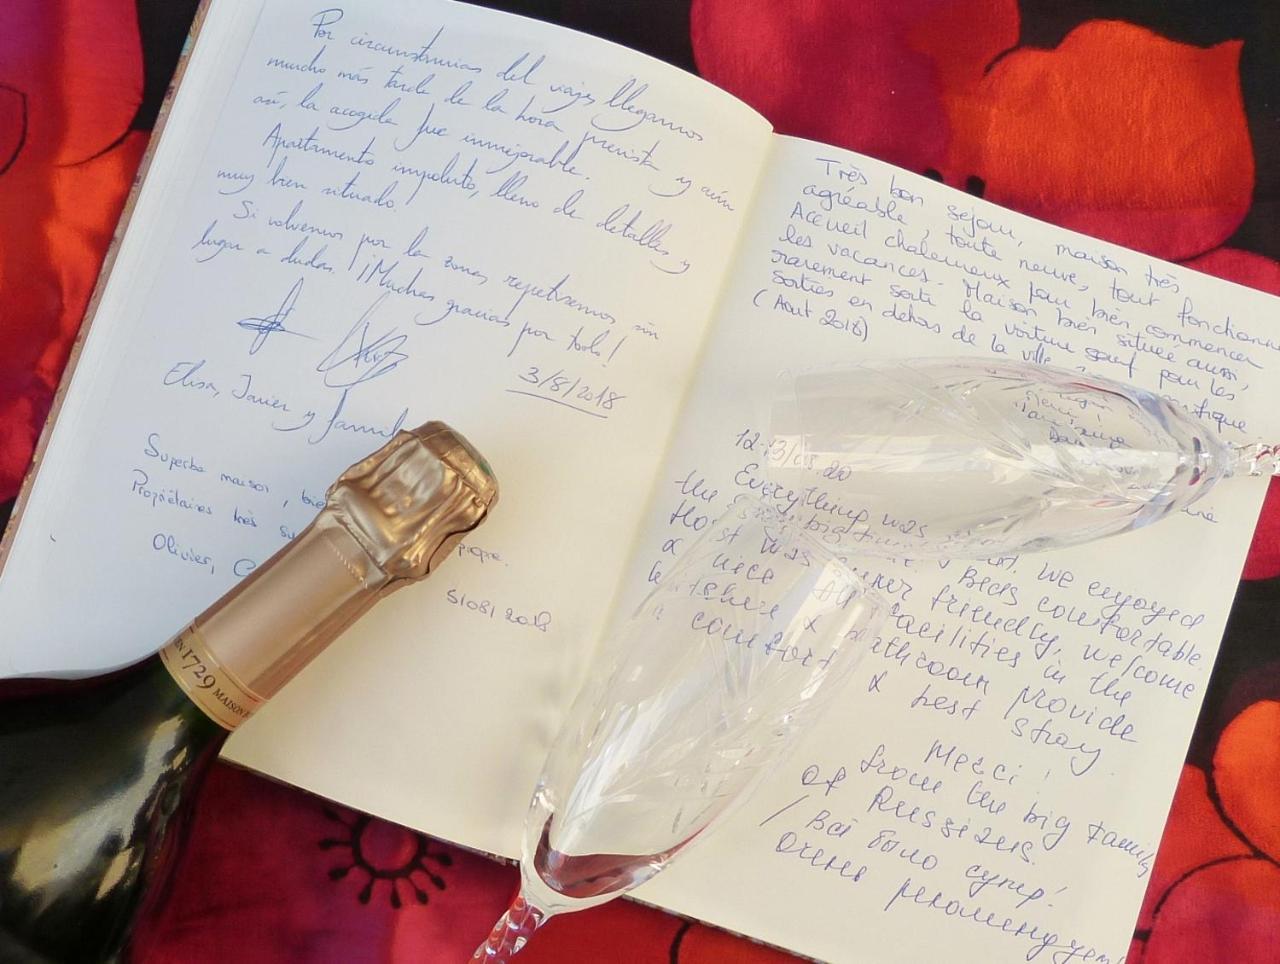 Por circunstancias del viaje, llegamos
mucho más tarde de la hora prevista y aún
así, la acogida fue inmejorable.
Apartamento impoluto, lleno de detalles y
muy bien situado!
Si volvemos por la zona, repetiremos sin
lugar a dudas. ¡Muchas gracias por todo!
3/8/2018
Elisa, Javier y famil
Superbe maison, bie
Propriétaires très propre.
Olivier,
5/08/2018
Très bon séjour, maison très
agréable, toute neuve, tout fonctionne
Accueil chaleureux pour bien commencer
les vacances. Maison bien située aussi,
rarement sorti la voiture sauf pour les
sorties en dehors de la ville
(Aout 2018)
Everything was
the big We enjoyed
Host was super friendly, welcome
Beds comfortable.
& nice All facilities in the
kitchen & bathroom provide
comfort & best stay
Merci!
from the big family
of Russians.
/ Всё было супер!
очень рекомендуем
EN 1729 MAISON